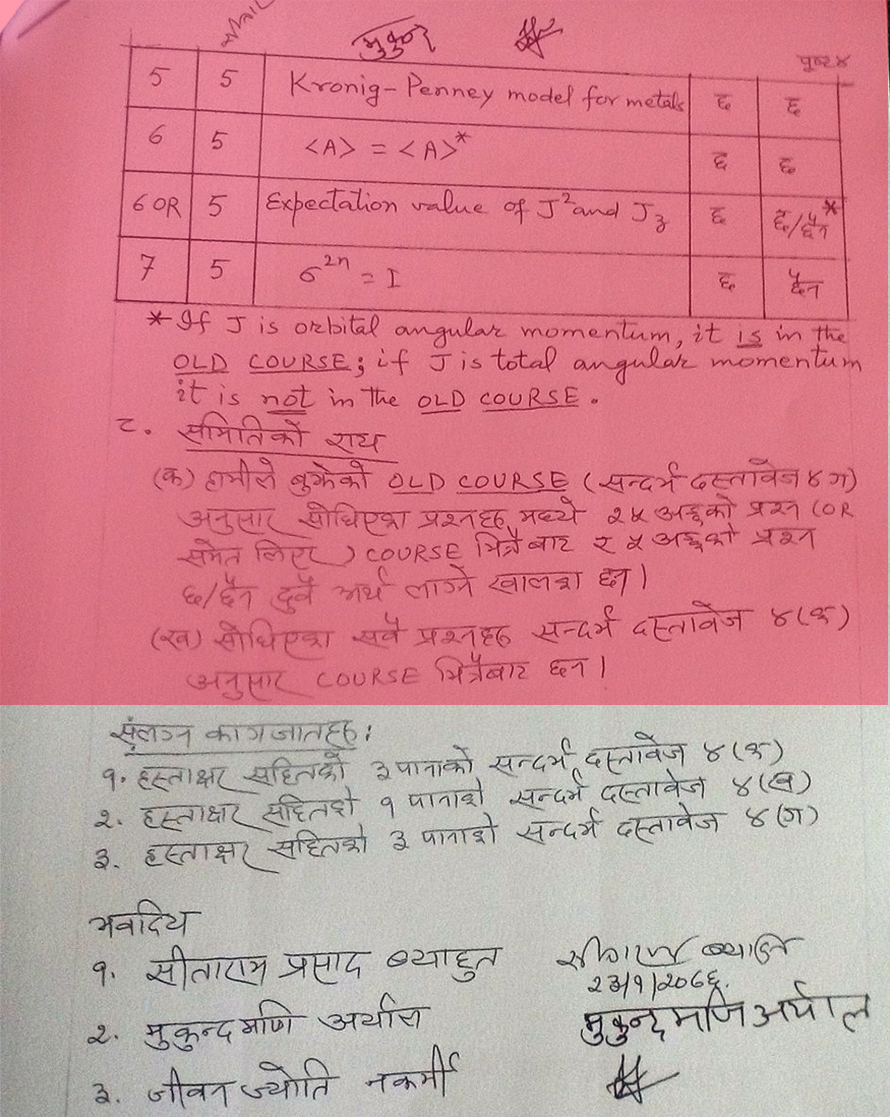 मुकुन्द
पृष्ट ४
5 5 Kronig-Penney model for metals छ छ
6 5 <A> = <A>* छ छ
6 OR 5 Expectation value of J² and J₃ छ छ/छैन*
7 5 σ²ⁿ = I छ छैन
* If J is orbital angular momentum, it is in the
OLD COURSE; if J is total angular momentum
it is not in the OLD COURSE.
८. समितिको राय
(क) हामीले बुझेको OLD COURSE (सन्दर्भ दस्तावेज ४ ग)
अनुसार सोधिएका प्रश्नहरु मध्ये २५ अङ्कको प्रश्न (OR
समेत लिएर) COURSE भित्रैबाट २५ अङ्कको प्रश्न
छ/छैन दुवै अर्थ लाग्ने खालका छन्।
(ख) सोधिएका सवै प्रश्नहरु सन्दर्भ दस्तावेज ४(क)
अनुसार COURSE भित्रैबाट छन।
संलग्न कागजातहरु:
१. हस्ताक्षर सहितको ३ पानाको सन्दर्भ दस्तावेज ४(क)
२. हस्ताक्षर सहितको १ पानाको सन्दर्भ दस्तावेज ४(ख)
३. हस्ताक्षर सहितको ३ पानाको सन्दर्भ दस्तावेज ४(ग)
भवदिय
१. सीताराम प्रसाद ब्याहुत
२३/१/२०६६.
२. मुकुन्द मणि अर्याल मुकुन्द मणि अर्याल
३. जीवन ज्योति नकर्मी